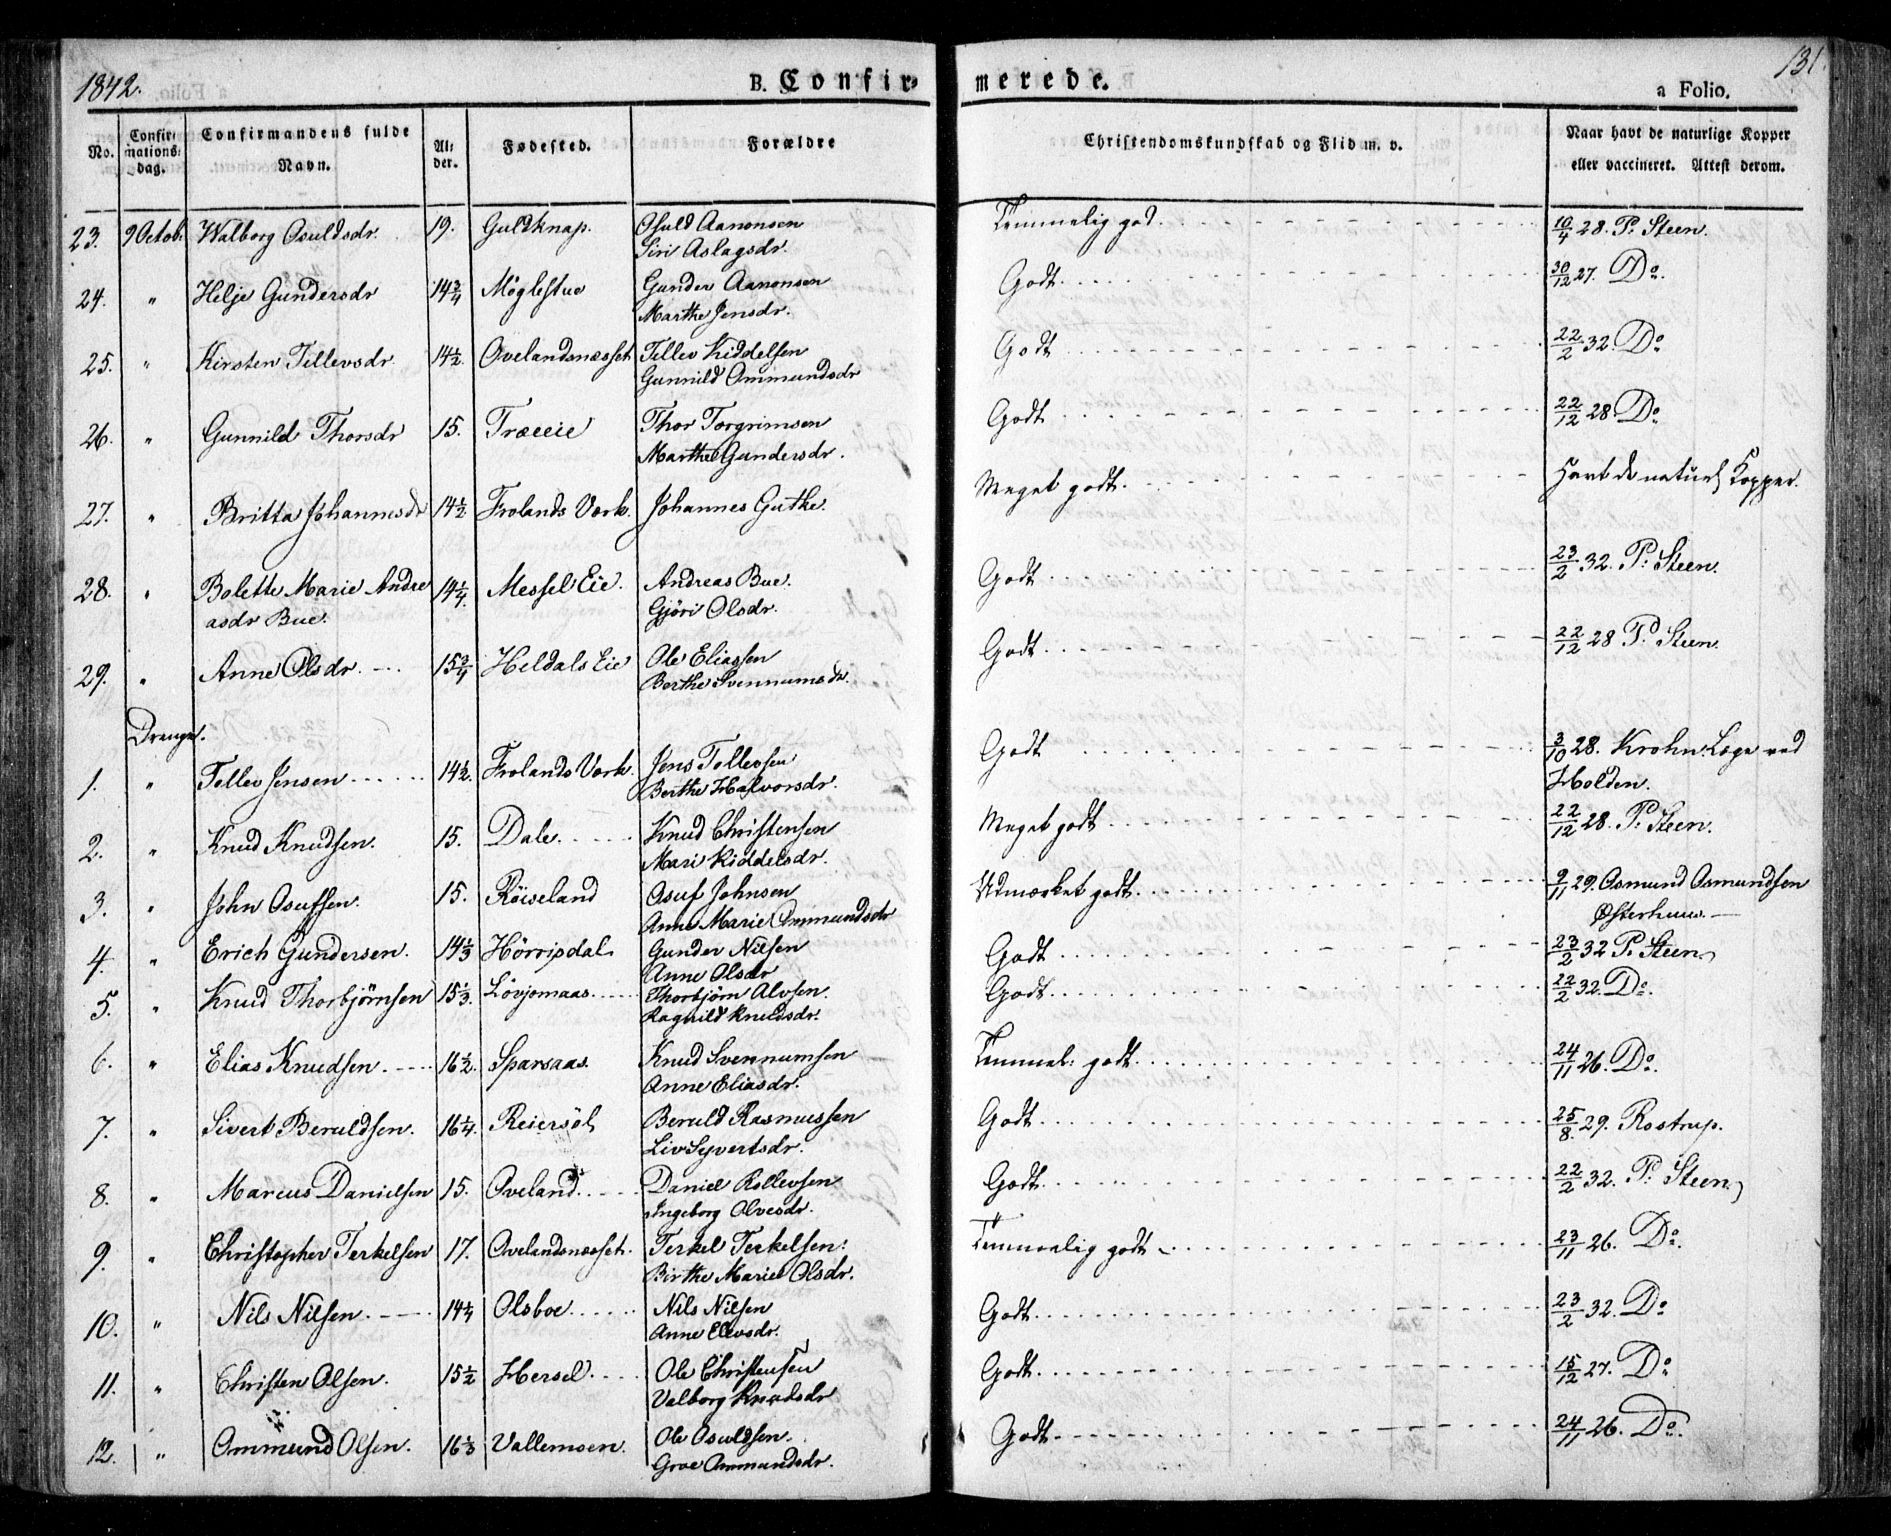 1842.
B. Confirmerede.
131.
a Folio.
No. Confirmationsdag. Confirmandens fulde Navn. Alder. Fødested. Forældre Christendomskundskab og Flid m. v. Naar havt de naturlige Kopper eller vaccineret. Attest derom.
23. 9 Octob. Walborg Osuldsdr. 19. Guldknap. Osuld Aanonsen Temmelig god. 10/4 28. P. Steen.
Siri Aslagsdr.
24. " Helje Gundersdr 14 3/4 Møglestue Gunder Aanonsen Godt. 30/12 27. Do.
Marthe Jensdr.
25. " Kirsten Tellevsdr. 14 1/2. Ovelandsnæsset Tellev Kiddelsen Godt 22/2 32. Do
Gunnild Ommundsdr
26. " Gunnild Thorsdr 15. Træeie Thor Torgrimsen Godt 22/12 28. Do
Marthe Gundersdr.
27. " Britta Johannesdr 14 1/2. Frolands Værk. Johannes Guthe. Meget godt. Havt de naturl Kopper.
28. " Bolette Marie Andre 14 1/4. Messel Eie. Andreas Bue. Godt 23/2 32. P. Steen.
asdr Bue. Gjöri Olsdr.
29. " Anne Olsdr. 15 3/4 Heldals Eie Ole Eliassen Godt 22/12 28 P. Steen.
Berthe Svennumsdr.
Drenge.
1. " Tellev Jensen 14 1/2. Frolands Værk. Jens Tellevsen Godt 3/10 28. Krohn Læge ved
Berthe Halvorsdr. Holden.
2. " Knud Knudsen. 15. Dale. Knud Christensen Meget godt 22/12 28. P. Steen.
Mari Kiddelsdr.
3. " John Osufsen. 15. Röiseland Osuf Johnsen Udmærket godt. 9/11 29. Osmund Osmundsen
Anne Marie Ommundsdr Østerhuus.
4. " Erich Gundersen. 14 1/3 Hörripdal Gunder Nilsen Godt 23/2 32 P. Steen
Anne Olsdr
5. " Knud Thorbjörnsen 15 1/3. Lövjomaas. Thorbjörn Alvsen. Godt 22/2 32. Do.
Ragnild Knudsdr.
6. " Elias Knudsen. 16 1/2. Sparsaas. Knud Svennumsen Temmel: godt. 24/11 26. Do.
Anne Eliasdr.
7. " Sivert Beruldsen. 16 1/4. Reiersöl Beruld Rasmussen Godt 25/8. 29. Rostrup.
Liv Syvertsdr.
8. " Marcus Danielsen 15. Oveland. Daniel Rollevsen Godt. 22/2 32. P. Steen
Ingeborg Olvesdr.
9. " Christopher Terkelsen 17. Ovelandsnæsset. Terkel Terkelsen. Temmelig godt 23/11 26. Do.
Birthe Marie Olsdr.
10. " Nils Nilsen. 14 1/4 Olsboe. Nils Nilsen Godt. 23/2 32. Do
Anne Elevsdr.
11. " Christen Olsen. 15 1/2 Hersel. Ole Christensen Godt. 15/12 27. Do
Valborg Knudsdr
12. " Ommund Olsen. 16 1/3 Vallemoen. Ole Osuldsen. Godt 24/11 26. Do.
Groe Ommundsdr.